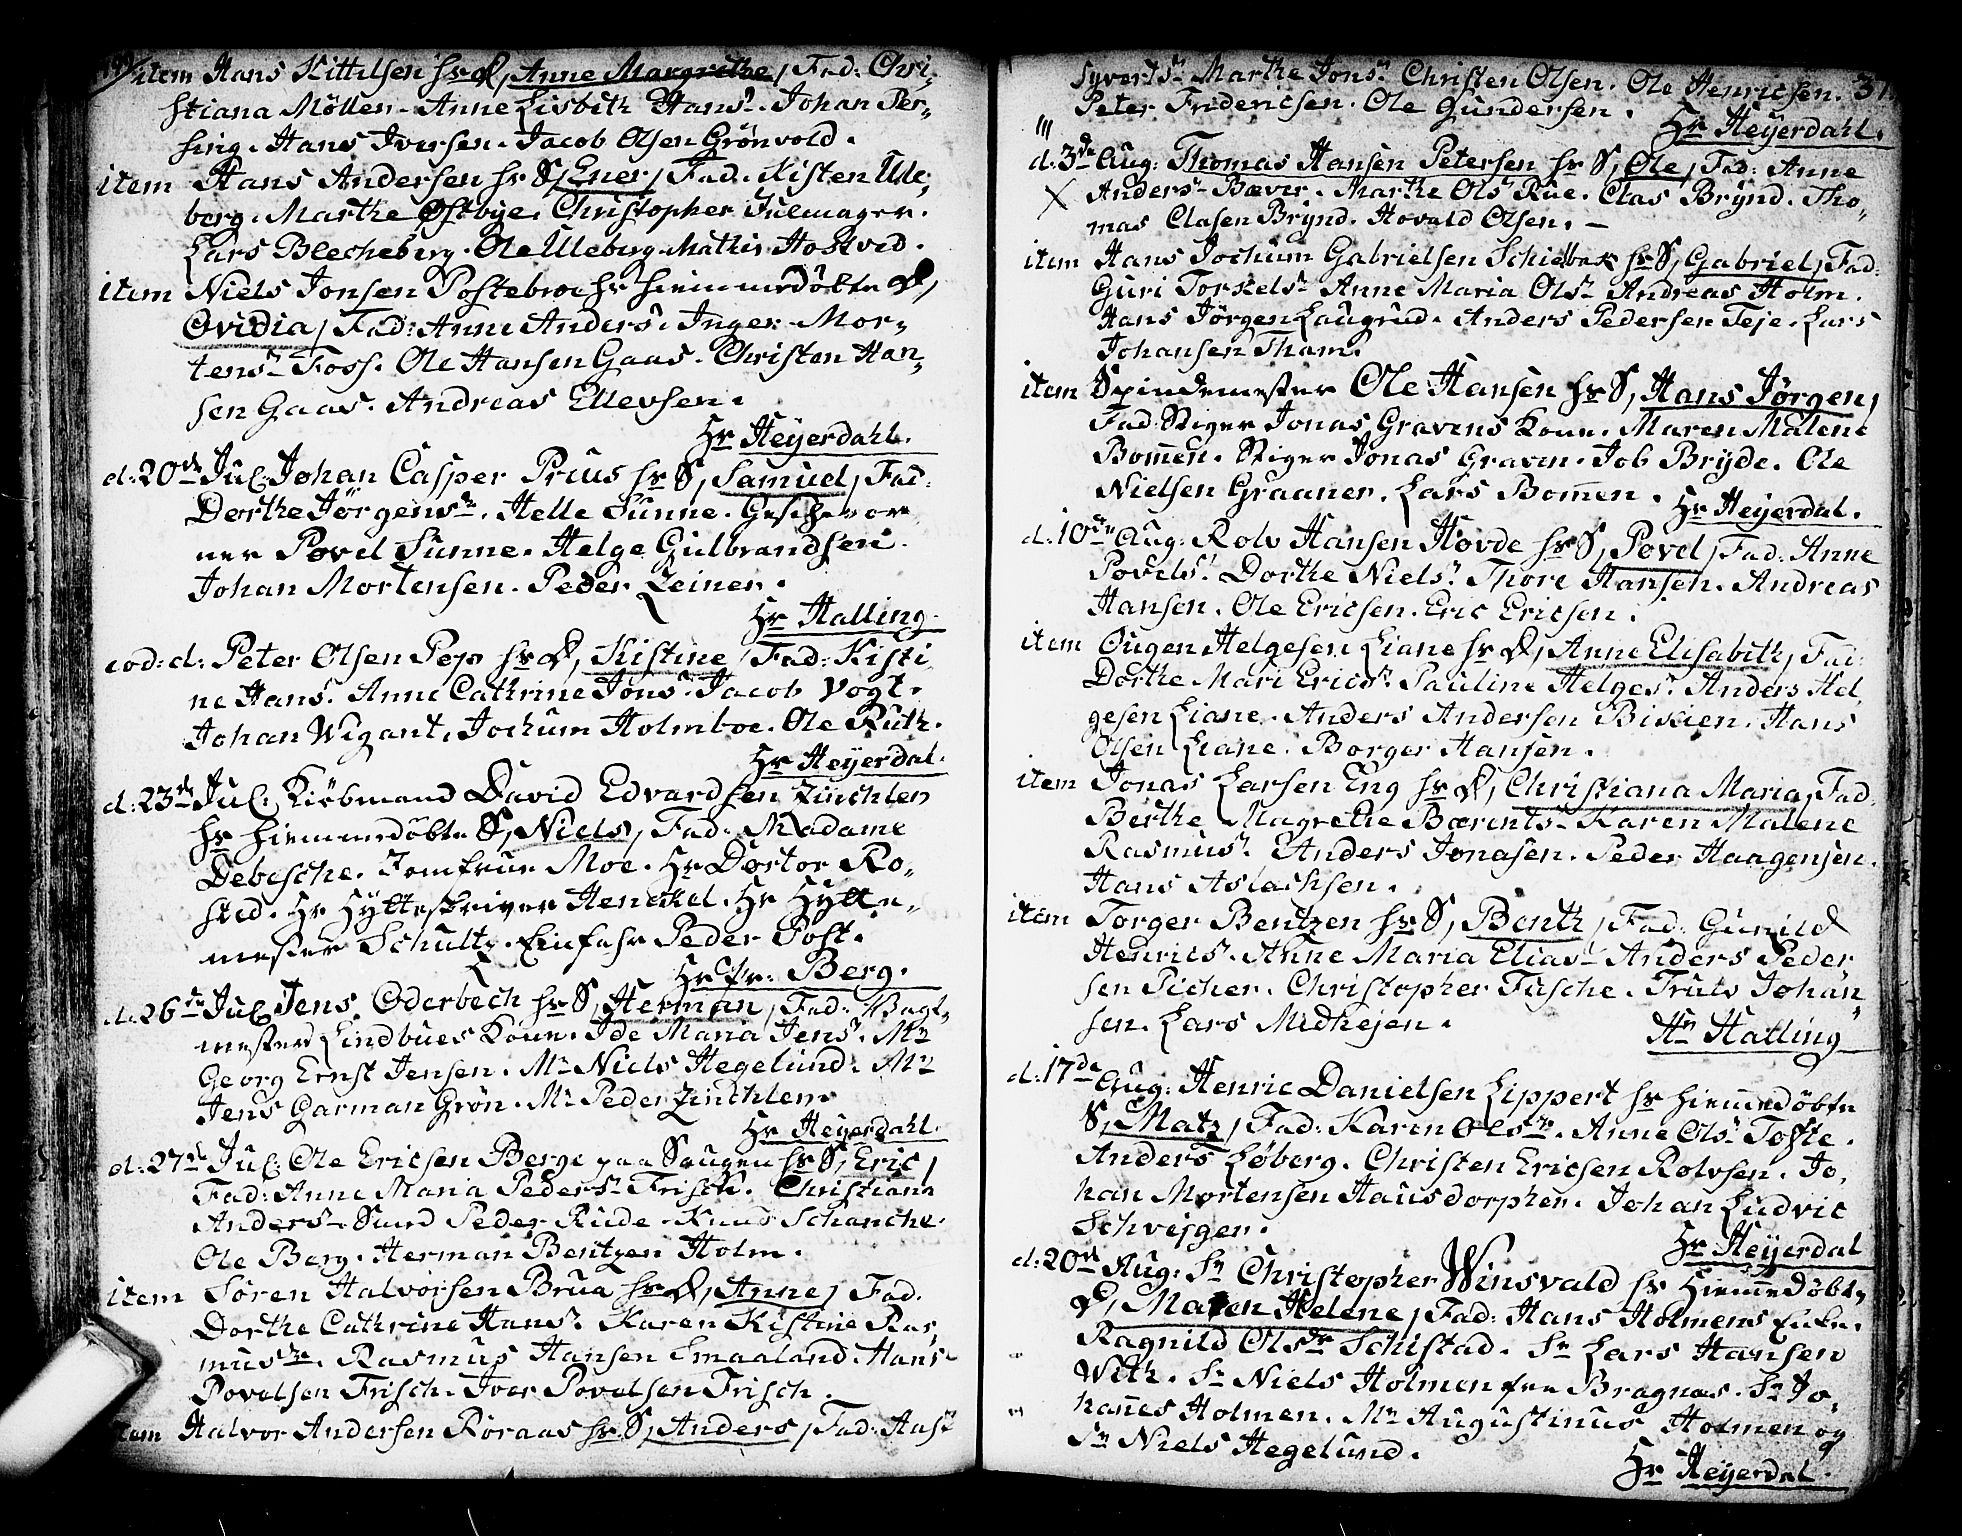 item Hans Kittilsen hr D, Anne Margrethe, Fad: Chri,
stiana Möllen. Anne Lisbith Hans. Johan Per,
sing. Hans Iversen. Jacob Olsen Grönvold.
item Hans Andersen hr S, Ener, Fad. Kisten Ule,
berg. Marthe Østbye. Christopher Julmager.
Lars Blecheberg. Ole Uleberg. Mathis Hostved.
item Niels Jonsen Postebroe hr hiemmedöbte D,
Ovidia, Fad: Anne Anders. Inger Mor,
tens Foss. Ole Hansen Gaas. Christen Han,
sen Gaas. Andreas Ellevsen.
Hr Heyerdahl.
d: 20de Jul. Johan Casper Prius hr S, Samuel, Fad:
Dorthe Jörgens. Helle Sunne. Geschevor
ner Povel Sunne. Helge Gulbrandsen
Johan Mortensen. Peder Zeiner.
Hr Halling.
eod: d: Peter Olsen Pep hr D, Kistine, Fad: Kisti
ne Hans. Anne Cathrine Jons. Jacob Vogt.
Johan Wigant, Jochum Holmboe. Ole Ruth.
Hr Heyerdal.
d: 23de Jul. Kiöbmand David Edvardsen Zinchlen
hr hiemmedöbte S, Niels, Fad: Madame
Debesche. Jomfrue Moe. Hr Doctor Ro,
sted. Hr Hytteskriver Henckel. Hr Hytte,
mester Schultz. Einfahr Peder Post.
Hr Chr: Berg.
d: 26de Jul Jens Oderbech hr S, Herman, Fad: Vagt,
mester Lindbues Kone. Ide Maria Jens. Mr
Georg Ernst Jensen. Mr Niels Hegelund. Mr
Jens Garman Grön. Mr Peder Zinchlen.
Hr Heyerdahl.
d: 27de Jul: Ole Ericsen Berge paa Saugen hr S, Eric,
Fad: Anne Maria Peders Frisch. Christiana
Anders Sund Peder Rude. Knud Schanche.
Ole Berg. Herman Bentzen Holm.
item Sören Halvorsen Brua hr D, Anne, Fad.
Dorthe Cathrine Hans. Karen Kistine Ras,
mus. Rasmus Hansen Smaaland. Hans
Povelsen Frisch. Iver Povelsen Frisch.
item Halvor Andersen Röraas hr S, Anders, Fad: Aase
Syverts. Marthe Jons. Christen Olsen. Ole Henricsen.
Peter Fridericsen. Ole Gundersen.
Hr Heyerdahl.
d. 3de Aug: Thomas Hansen Petersen hr S, Ole, Fad: Anne
Anders Bæver. Marthe Ols Rue. Clas Brynd. Tho,
mas Clasen Brynd. Hovald Olsen. –
item Hans Jochum Gabrielsen Schiebek hr S, Gabriel, Fad:
Guri Torkels. Anne Maria Ols Andreas Holm.
Hans Jörgen Laugrud. Anders Pedersen Teje. Lars
Johansen Tham.
item Spindemester Ole Hansen hr S, Hans Jörgen,
Fad: Stiger Jonas Gravens Kone. Maren Malene
Bommen. Stiger Jonas Graven. Job Bryde. Ole
Nielsen Graaner. Lars Bommen.
Hr Heyerdal.
d. 10de Aug: Rolv Hansen Hovde hr S, Povel, Fad: Anne
Povels. Dorthe Niels. Thore Hansen. Andreas
Hansen. Ole Ericsen. Eric Ericsen.
item Ougen Helgesen Liane hr D, Anne Elisabeth, Fad:
Dorthe Mari Erics. Pauline Helges. Anders Hel,
gesen Liane. Anders Andersen Biskien. Hans
Olsen Liane. Borger Hansen.
item Jonas Larsen Eng hr D, Christiana Maria, Fad:
Berthe Magrethe Bærents. Karen Malene
Rasmus. Anders Jonasen. Peder Haagensen.
Hans Aslachsen.
item Torger Bentzen hr S, Benth, Fad: Gunild
Henrics. Anne Maria Elias. Anders Peder
sen Picher. Christopher Fasche. Truls Johan
sen. Lars Midhejen.
Hr Halling
d. 17de Aug: Henric Danielsen Lippert hr hiemmedöbte
S, Matz, Fad: Karen Ols. Anne Ols Tofte.
Anders Löberg. Christen Ericsen Rolvsen. Jo,
han Mortensen Hausdorpher. Johan Ludvic
Schvejger.
Hr Heyerdal
d: 20de Aug: Sr Christopher Winsvald hr hiemmedöbte
D, Maren Helene, Fad: Hans Holmens Enke.
Ragnild Ols Schistad. Sr Lars Hansen
With. Sr Niels Holmen fra Bragnæs. Sr Jo,
hannes Holmen. Mr Augustinus Holmen og
Sr Niels Hegelund.
Hr Heyerdal.